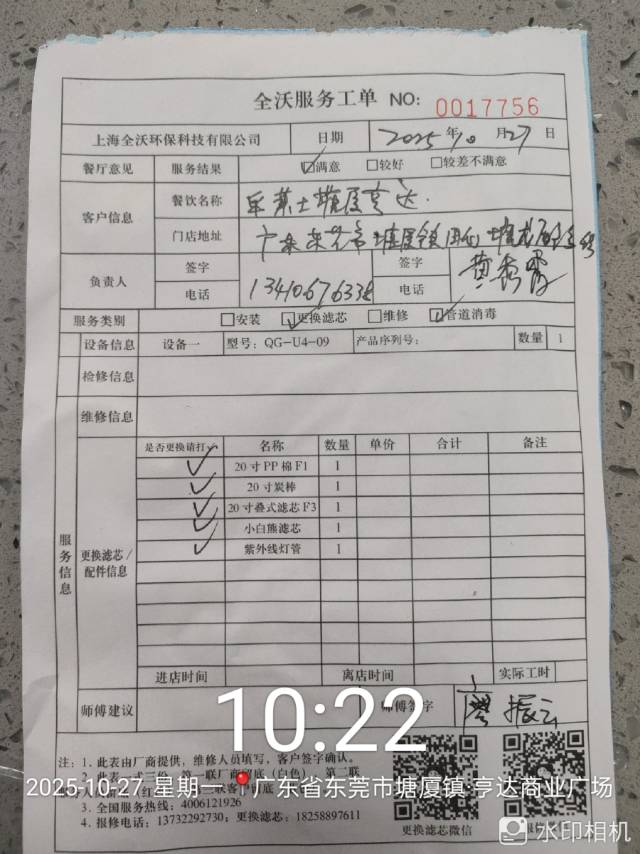 全沃服务工单 NO: 0017756
上海全沃环保科技有限公司 日期 2025年10月27日
餐厅意见 服务结果 ☑满意 □较好 □较差不满意
客户信息 餐饮名称 塘厦亨达
门店地址 广东东莞市塘厦镇
负责人 签字 签字 黄秀霞
电话 13410676338 电话
服务类别 □安装 ☑更换滤芯 □维修 ☑管道消毒
设备信息 设备一 型号: QG-U4-09 产品序列号: 数量 1
检修信息
维修信息
服务信息
更换滤芯/配件信息
是否更换请打✓ 名称 数量 单价 合计 备注
✓ 20寸PP棉F1 1
✓ 20寸炭棒 1
✓ 20寸叠式滤芯F3 1
✓ 小白熊滤芯 1
✓ 紫外线灯管 1
进店时间 离店时间 实际工时
师傅建议 师傅签字 廖振云
10:22
注: 1. 此表由厂商提供, 维修人员填写, 客户签字确认。
2. 此表一式三份 第一联厂商留底 (白色) 第二联
2025-10-27 星期一 广东省东莞市塘厦镇·亨达商业广场
3. 全国服务热线: 4006121926
4. 报修电话: 13732292730; 更换滤芯: 18258897611
更换滤芯微信
水印相机